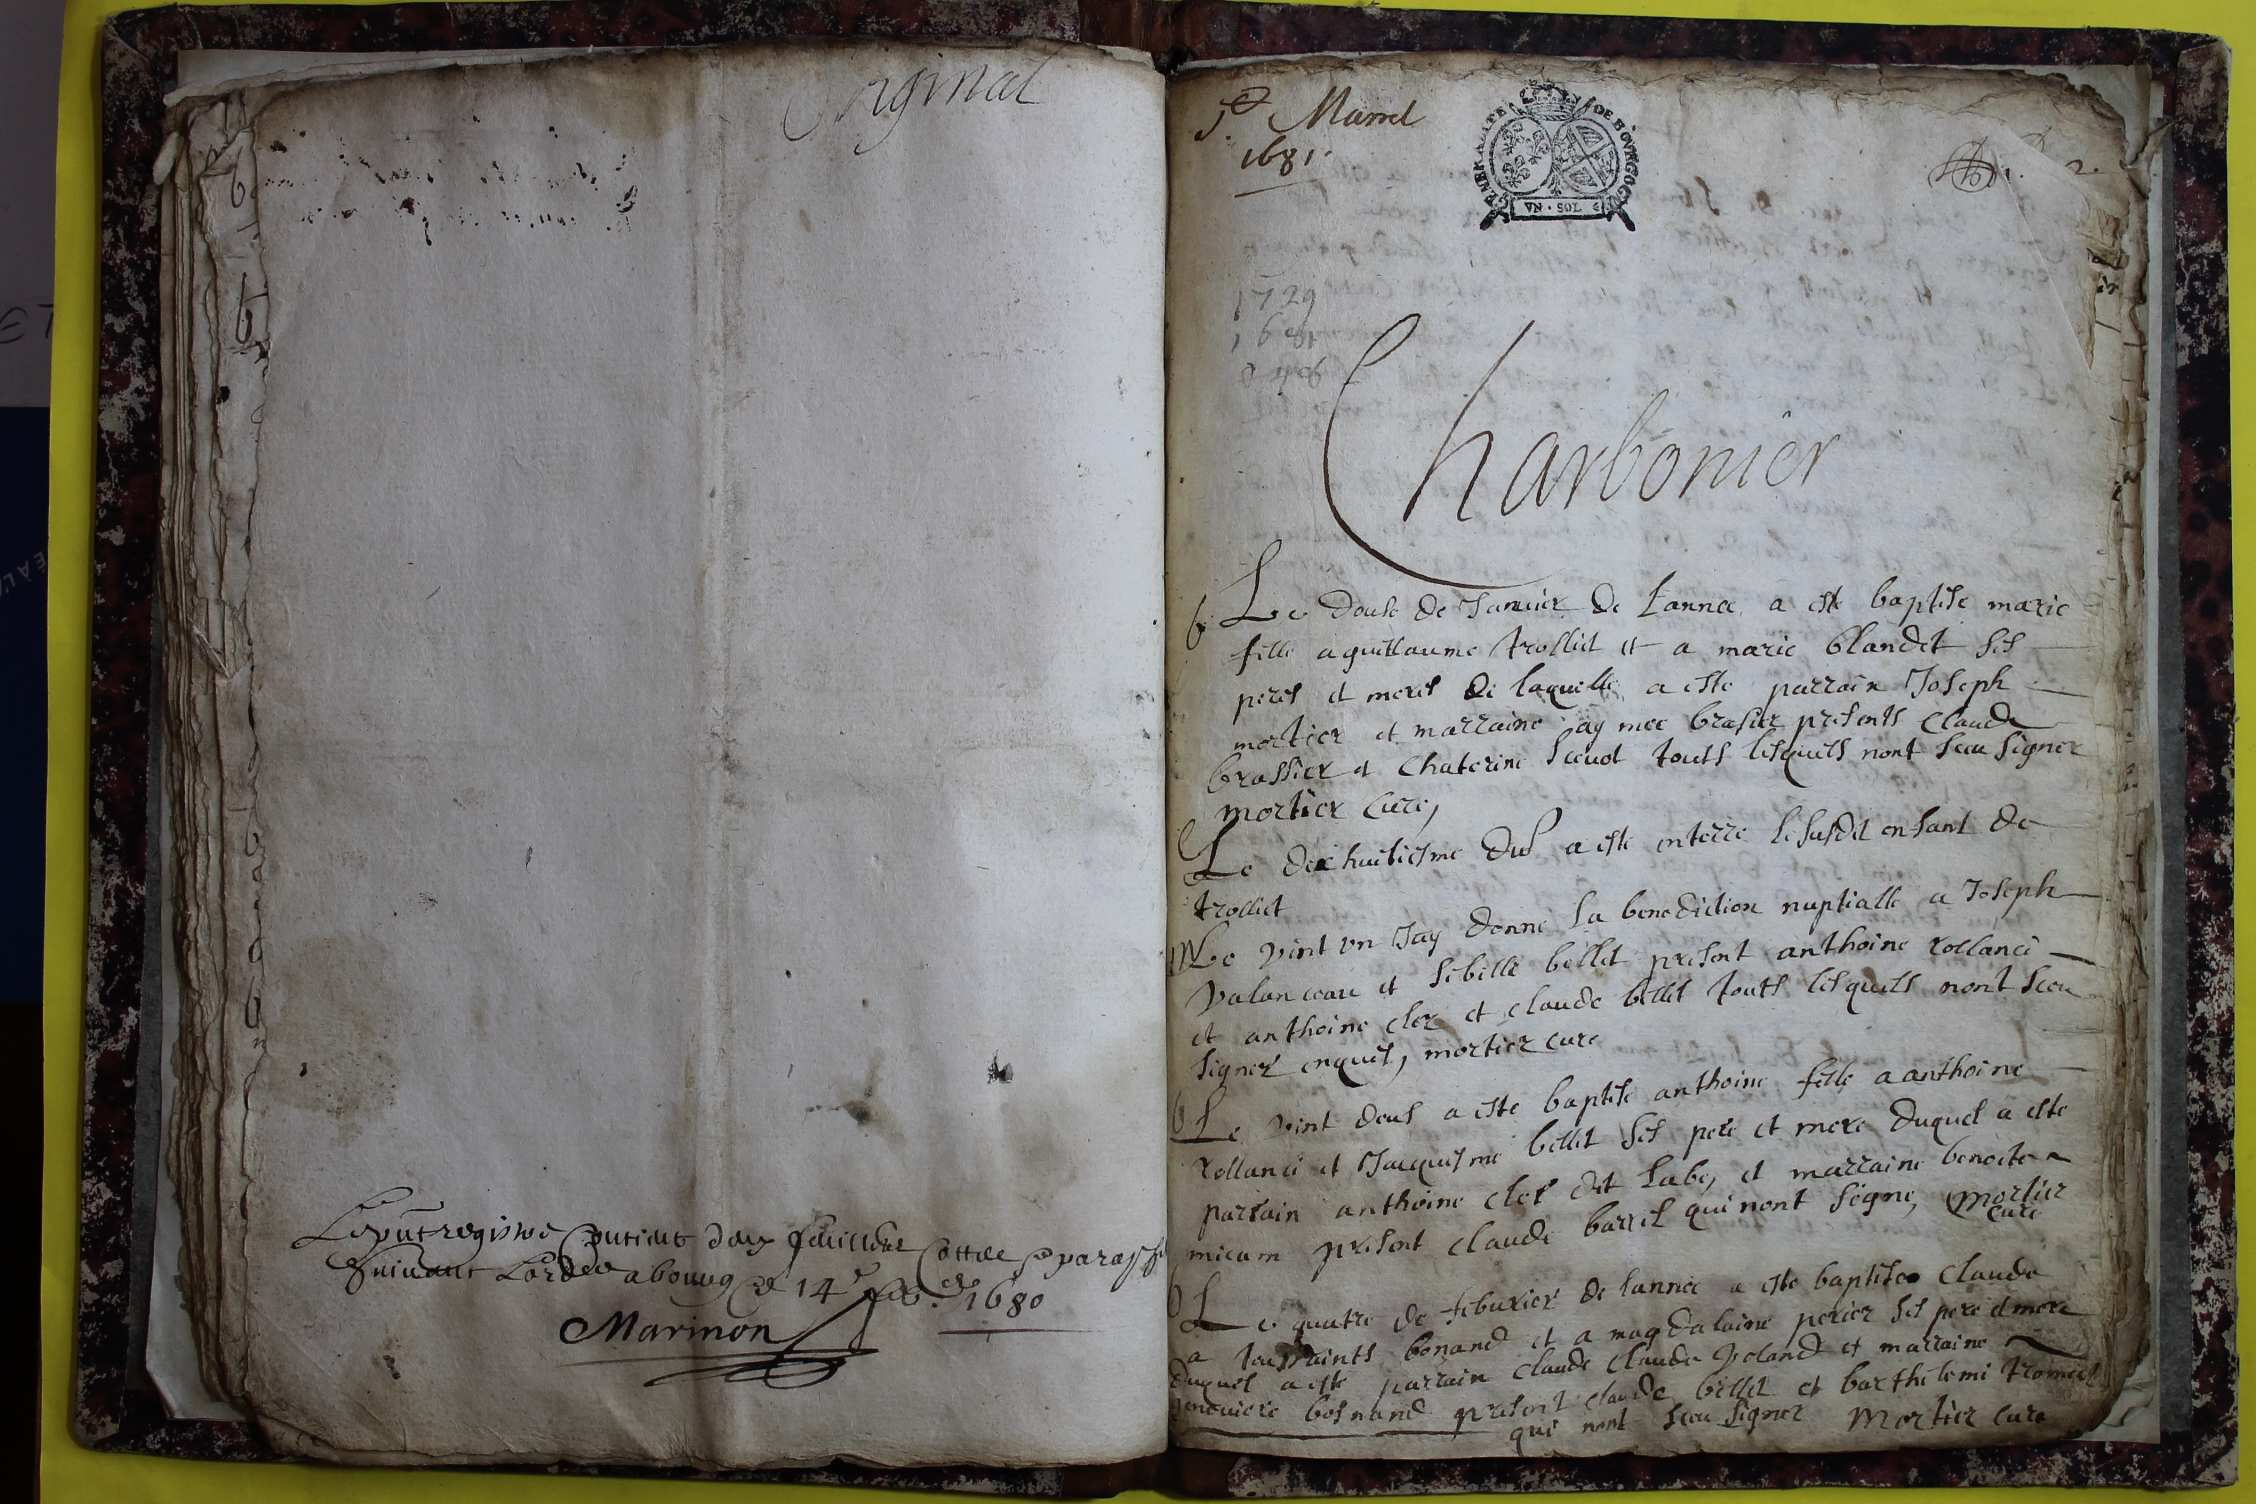 Original
Le pnt registre Contient deux feuillet Cottée et paraphé
Suivant Lorde a bourg ce 14e 1680
Marinon
St Marcel
1681.
GENERALITE DE BOURGOGNE
VN · SOL
2.
1729
1681
048
Charbonier
b Le douse de Januier de Lannee a este baptise marie
fille a guillaume trolliet et a marie blandet ses
peres et meres de laquelle a este parrain Joseph
mortier et marraine aymee brasier presents Claude
brassier et Chaterine touts lesquels nont sceu signer
mortier cure,
Le dixhuitiesme dud a este enterre le susdit enfant de
trolliet
M Le vint vn Jay donne la benediction nuptialle a Joseph
valanceau et sebille bellet present anthoine rollanci
et anthoine cler et claude bellet touts lesquels nont sceu
signer enquis, mortier cure
b Le vint deus a este baptise anthoine fille a anthoine
rollanci et Jacquesme bellet ses pere et mere duquel a este
parrain anthoine cler dit labe, et marraine benoite
micam present claude barril qui nont signe, mortier
cure
b Le quatre de feburier de lannee a este baptise claude
a toussaints bonand et a magdalaine perier ses pere et mere
duquel a este parrain claude claude poland et marraine
genevieve bosnand present claude bellet et barthelemi tromect
qui nont sceu signer Mortier cure